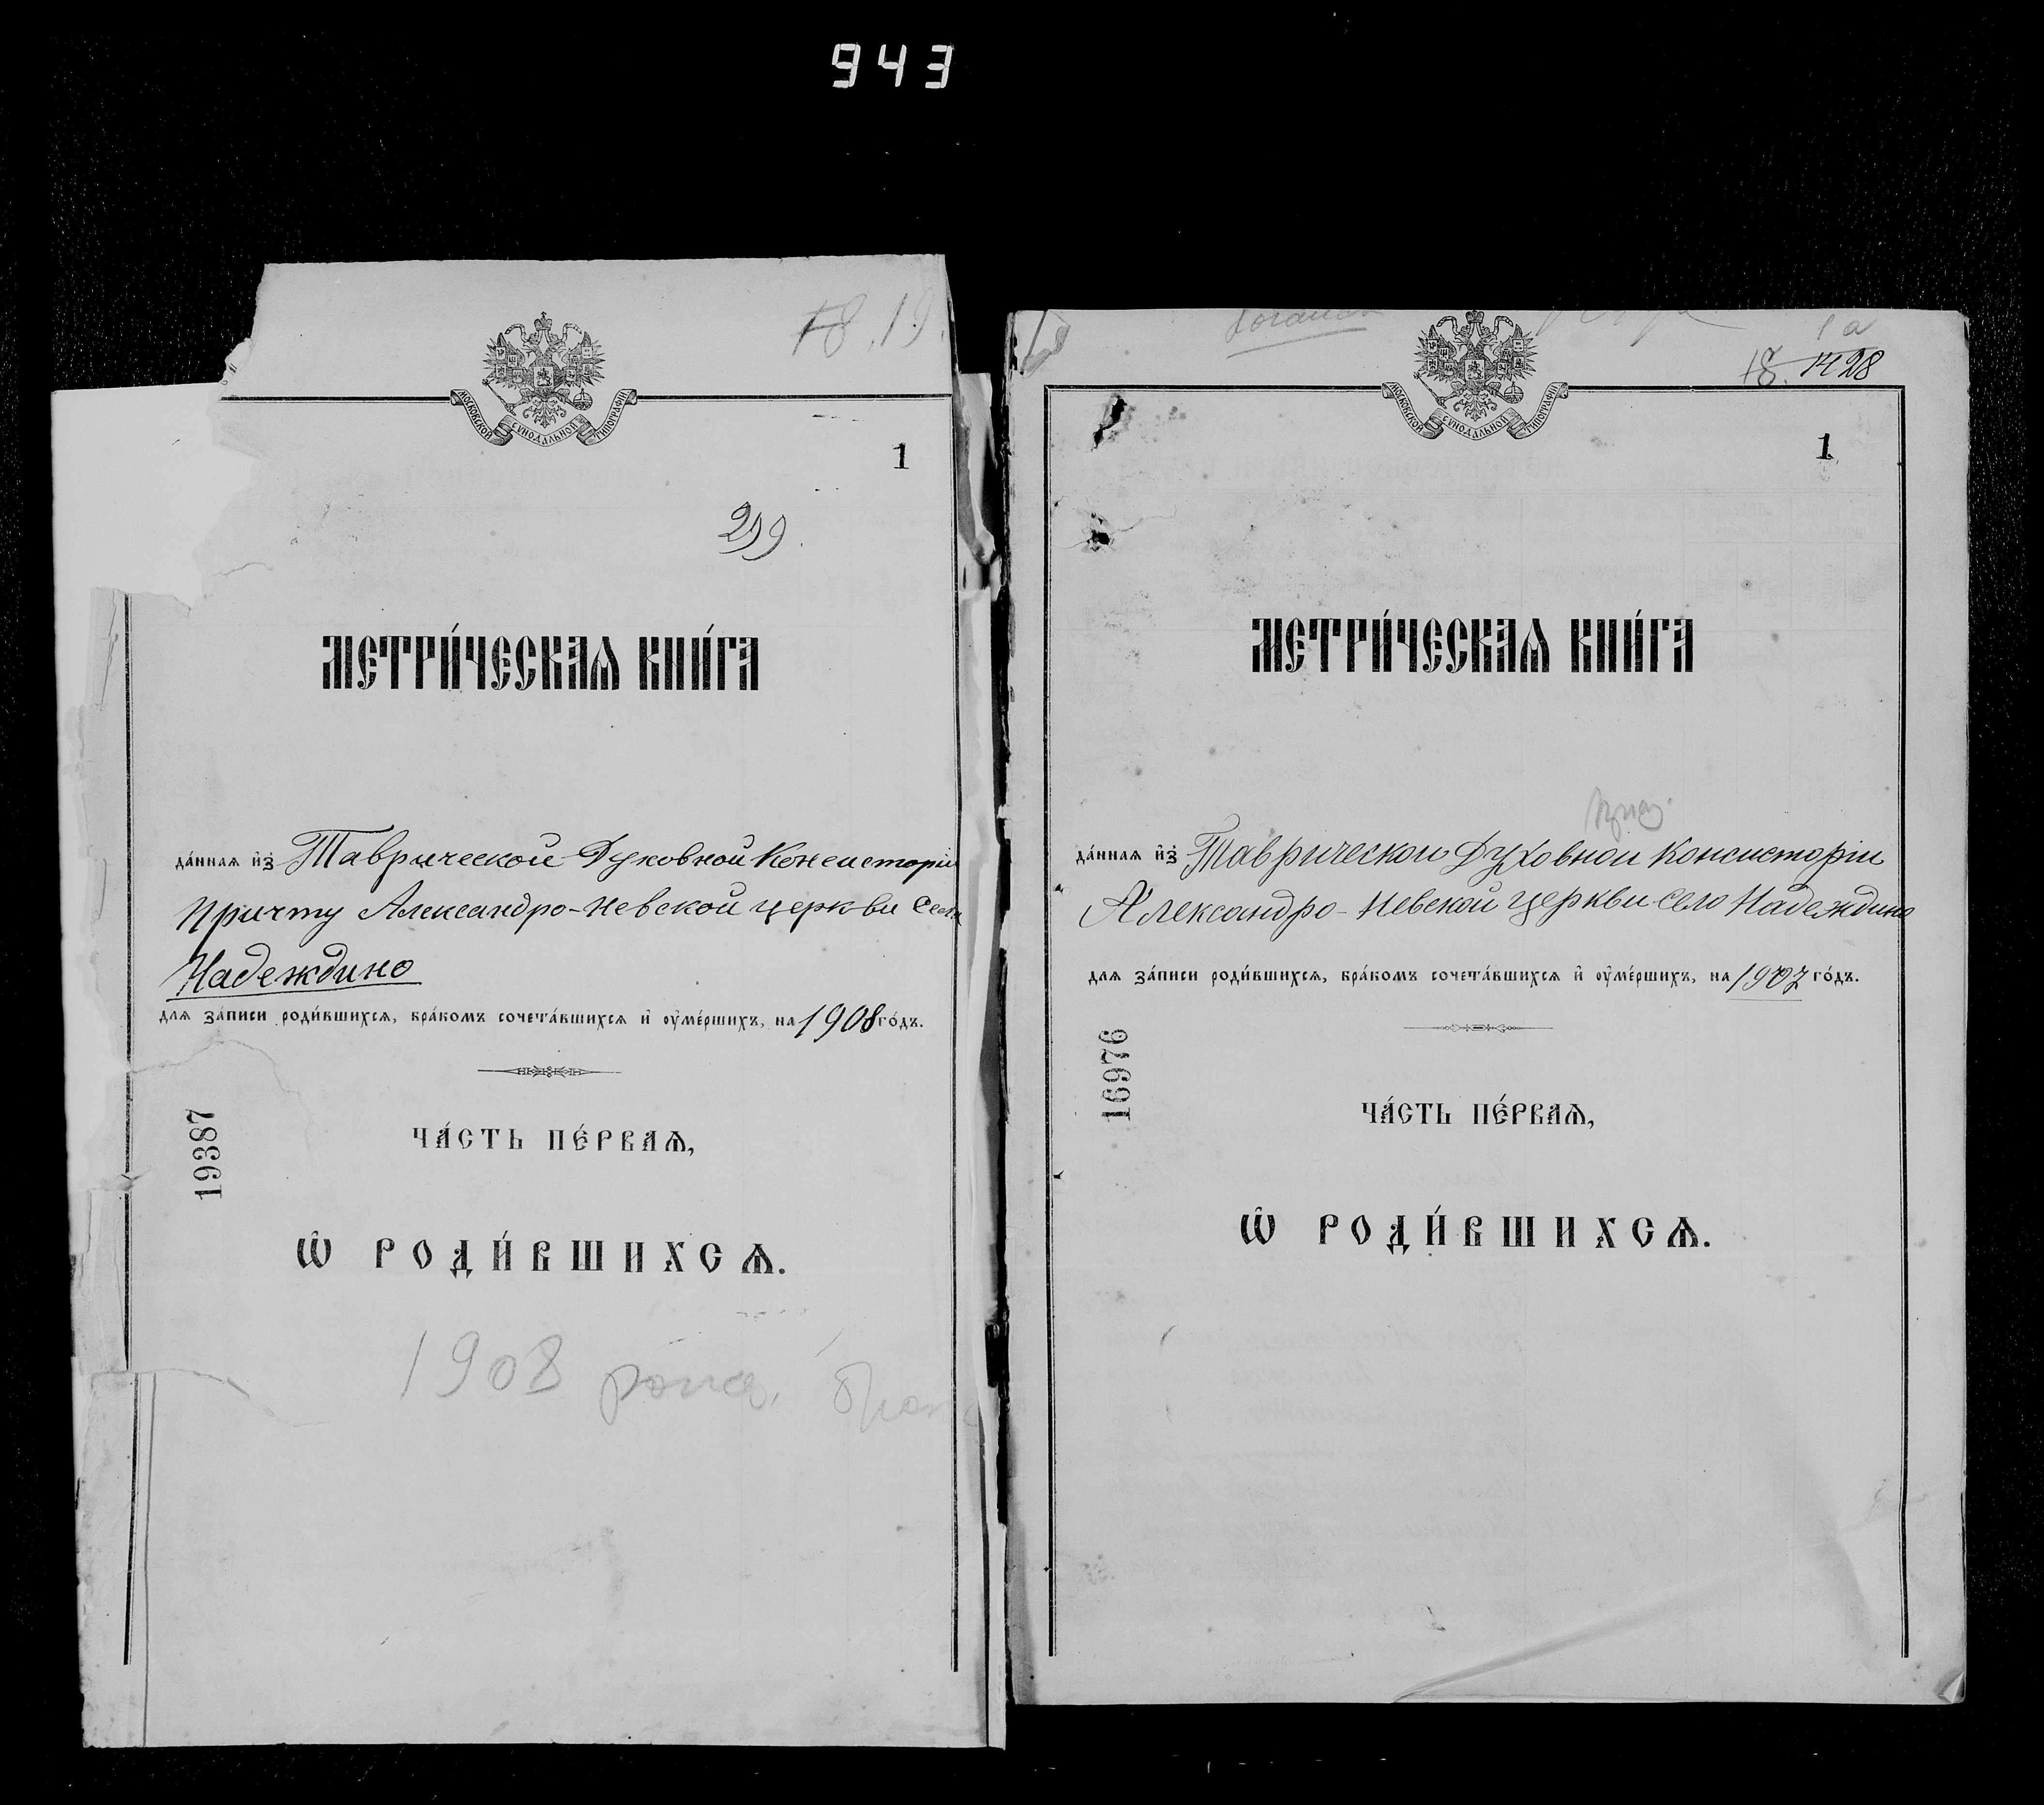 943
18.19.
МОСКОВСКОЙ СѴНОДАЛЬНОЙ ТИПОГРАФІИ
1
299.
МЕТРИ́ЧЕСКАѦ КНИ́ГА
да́нная и҆з̾ Таврической Духовной Консисторіи
Причту Александро-Невской церкви села
Надеждино
для за́писи роди́вшихся, бра́комъ сочета́вшихся и҆ ᲂу҆ме́ршихъ, на 1908 го́дъ.
19387
ЧА́СТЬ ПЕ́РВАѦ,
Ѽ РОДИ́ВШИХСѦ.
1908
1а
18. 1428
МОСКОВСКОЙ СѴНОДАЛЬНОЙ ТИПОГРАФІИ
1
МЕТРИ́ЧЕСКАѦ КНИ́ГА
да́нная и҆з̾ Таврической Духовной Консисторіи
Александро-Невской церкви село Надеждино
для за́писи роди́вшихся, бра́комъ сочета́вшихся и҆ ᲂу҆ме́ршихъ, на 1907 го́дъ.
16976
ЧА́СТЬ ПЕ́РВАѦ,
Ѽ РОДИ́ВШИХСѦ.